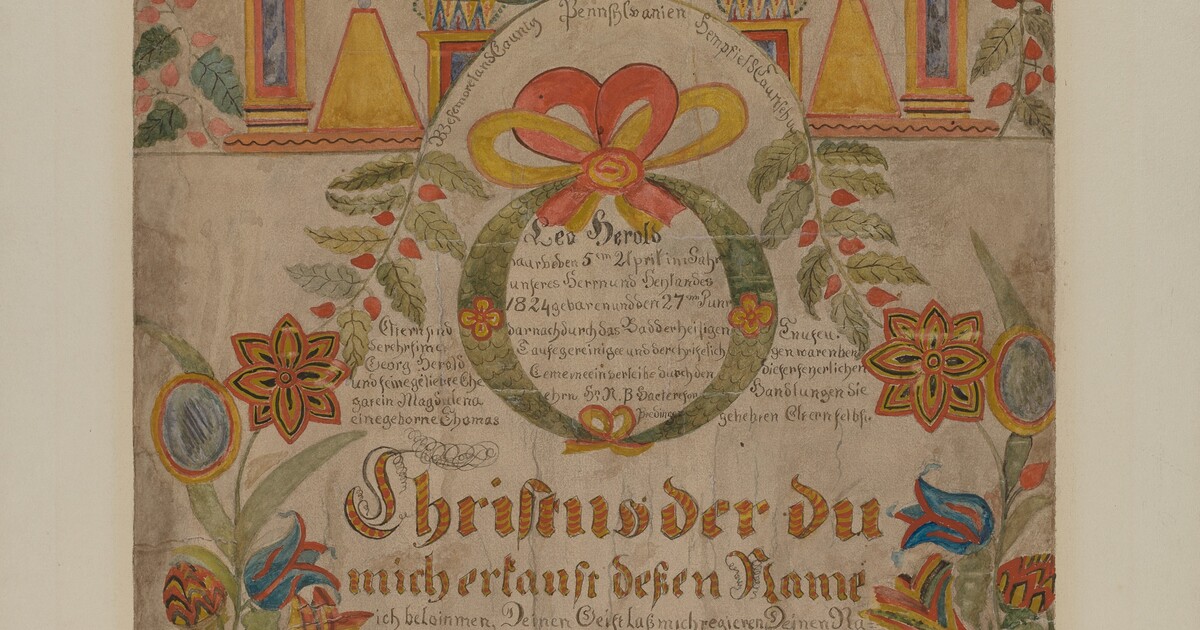 Wesemoreland Caunty Pennsylvanien Hempfield Taunschip
Leo Herold
naar beben 5ten April im Jahr
unseres Herrn und Heylandes
1824 gebaren und den 27ten Juni
darnach durch das Bad der heiligen
Taufe gereiniget und der christlich
Gemeine ein verleibt durch den
ehrn Hr. N. B. Prediner
Eltern sind
der ehrsime
Georg Herold
und seine geliebte Ehe
gatein Magdalena
eine geborne Thomas
Taufzeu.
gen waren ben
dieser feyerlichen
Handlungen die
geehrten Eltern selbst.
Christus der du
mich erkauft deßen Name
ich bekommen, Deinen Geist laß mich regieren Deinen Na=